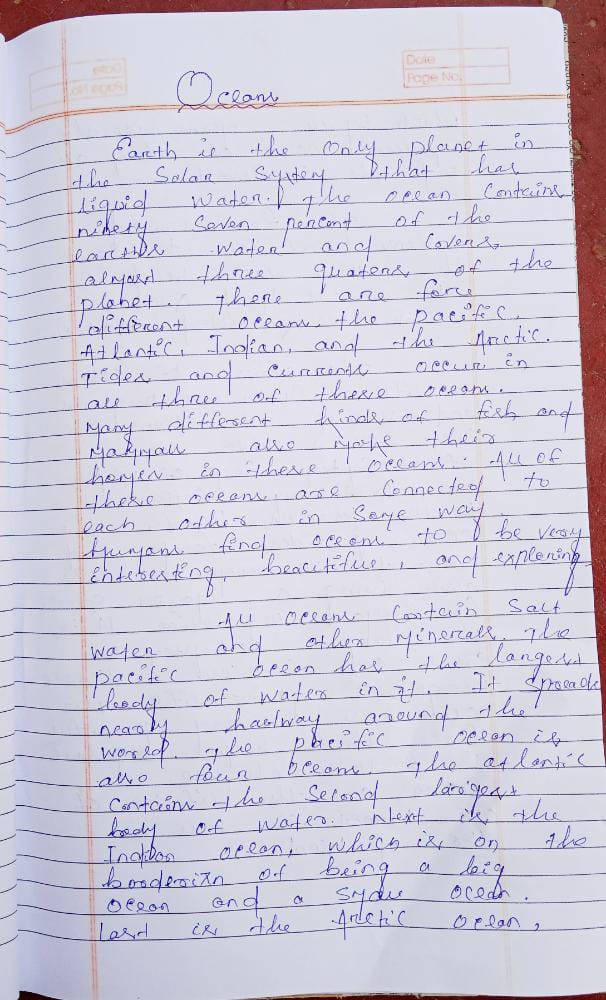 Date
Page No.
Oceans
Earth is the only planet in
the Solar System that has
liquid water. The ocean contains
ninety seven percent of the
earths water and covers
almost three quaters of the
planet. There are force
different oceans, the pacific,
Atlantic, Indian, and the Arctic.
Tides and currents occur in
all three of these oceans.
Many different kinds of fish and
mammals also make their
homes in these oceans. All of
these oceans are connected to
each other in some way.
Humans find oceans to be very
interesting, beautiful, and exploring
All oceans contain salt
water and other minerals. The
pacific ocean has the largest
body of water in it. It spreads
nearly halfway around the
world. The pacific ocean is
also four oceans. The atlantic
contains the second largest
body of water. Next is the
Indian ocean, which is on the
of being a big
ocean and a ocean.
last is the Arctic ocean,